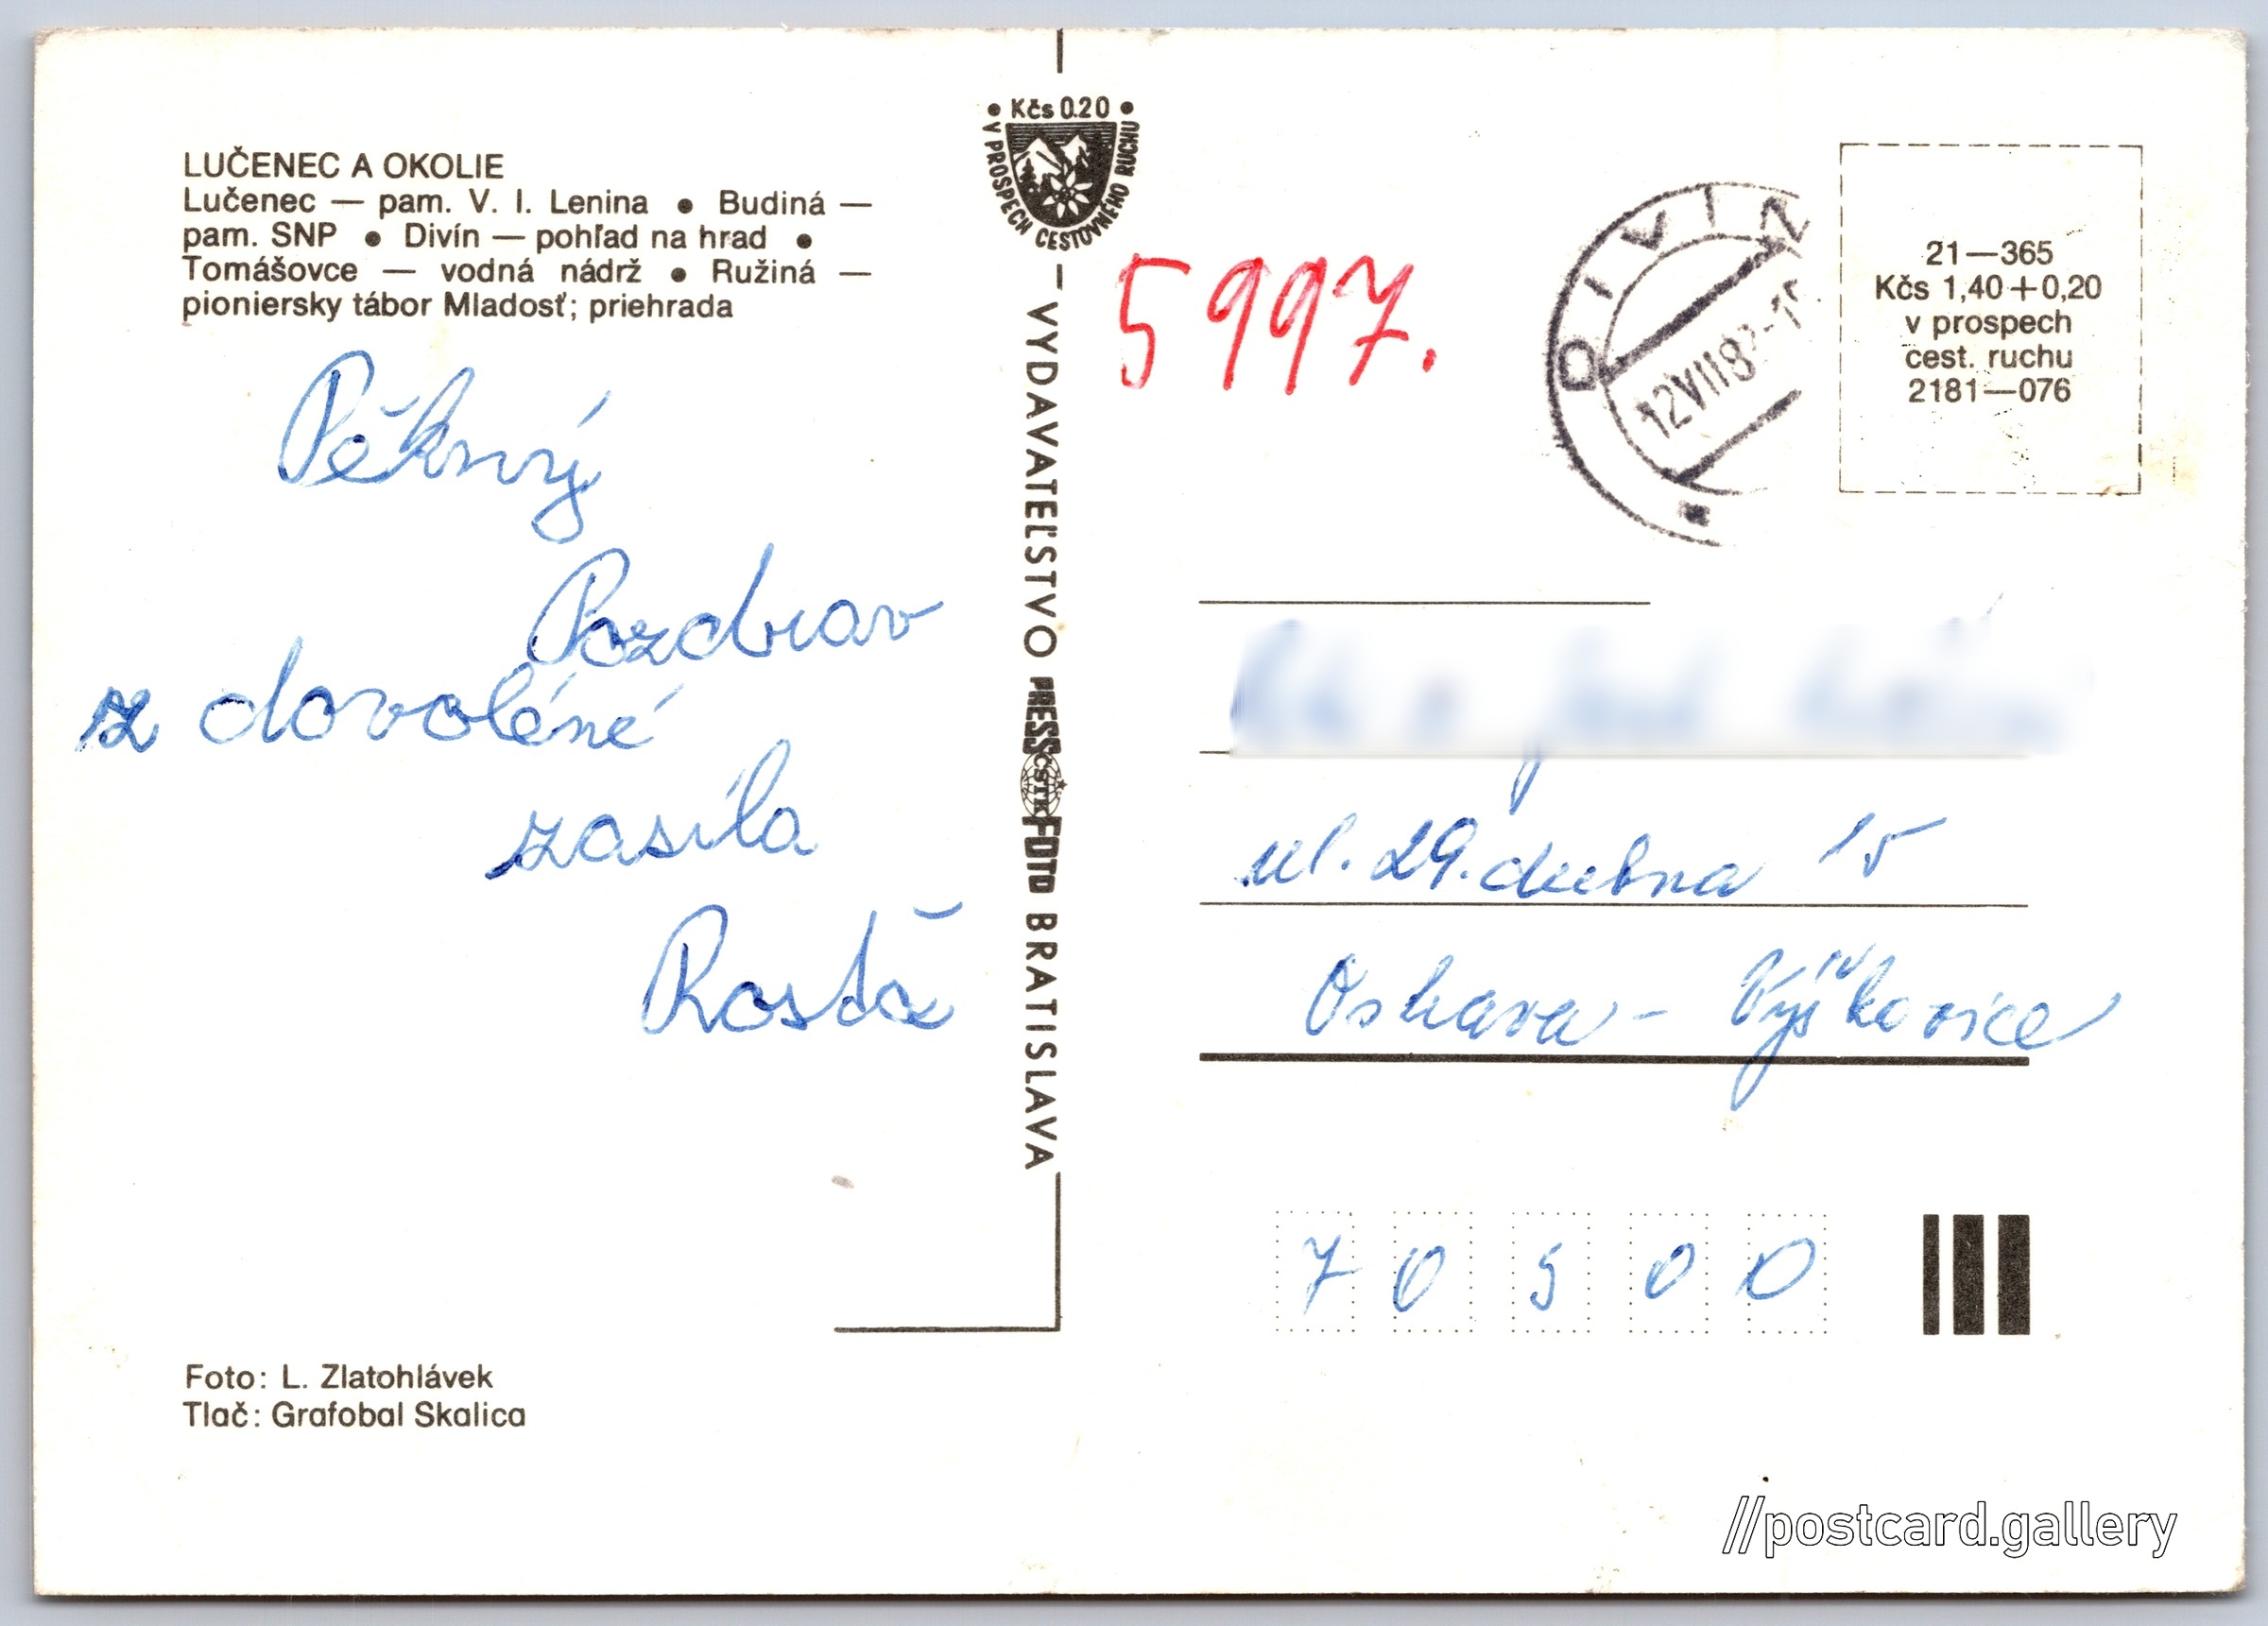 LUČENEC A OKOLIE
Lučenec — pam. V. I. Lenina ● Budiná —
pam. SNP ● Divín — pohľad na hrad ●
Tomášovce — vodná nádrž ● Ružiná —
pioniersky tábor Mladosť; priehrada
Pěkný
Pozdrav
z dovoléné
zasíla
Rosťa
Foto: L. Zlatohlávek
Tlač: Grafobal Skalica
• Kčs 0.20 •
V PROSPECH CESTOVNÉHO RUCHU
VYDAVATEĽSTVO PRESSFOTO BRATISLAVA
ČSTK
5997.
DIVÍN
12 VII 8
21—365
Kčs 1,40+0,20
v prospech
cest. ruchu
2181—076
ul. 29. dubna 15
Ostrava - Výškovice
70500
//postcard.gallery